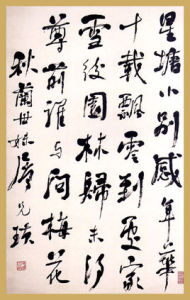 星塘小別感年華
十載飄零到處家
雪後園林歸未得
尊前誰與問梅花
秋蘭世妹